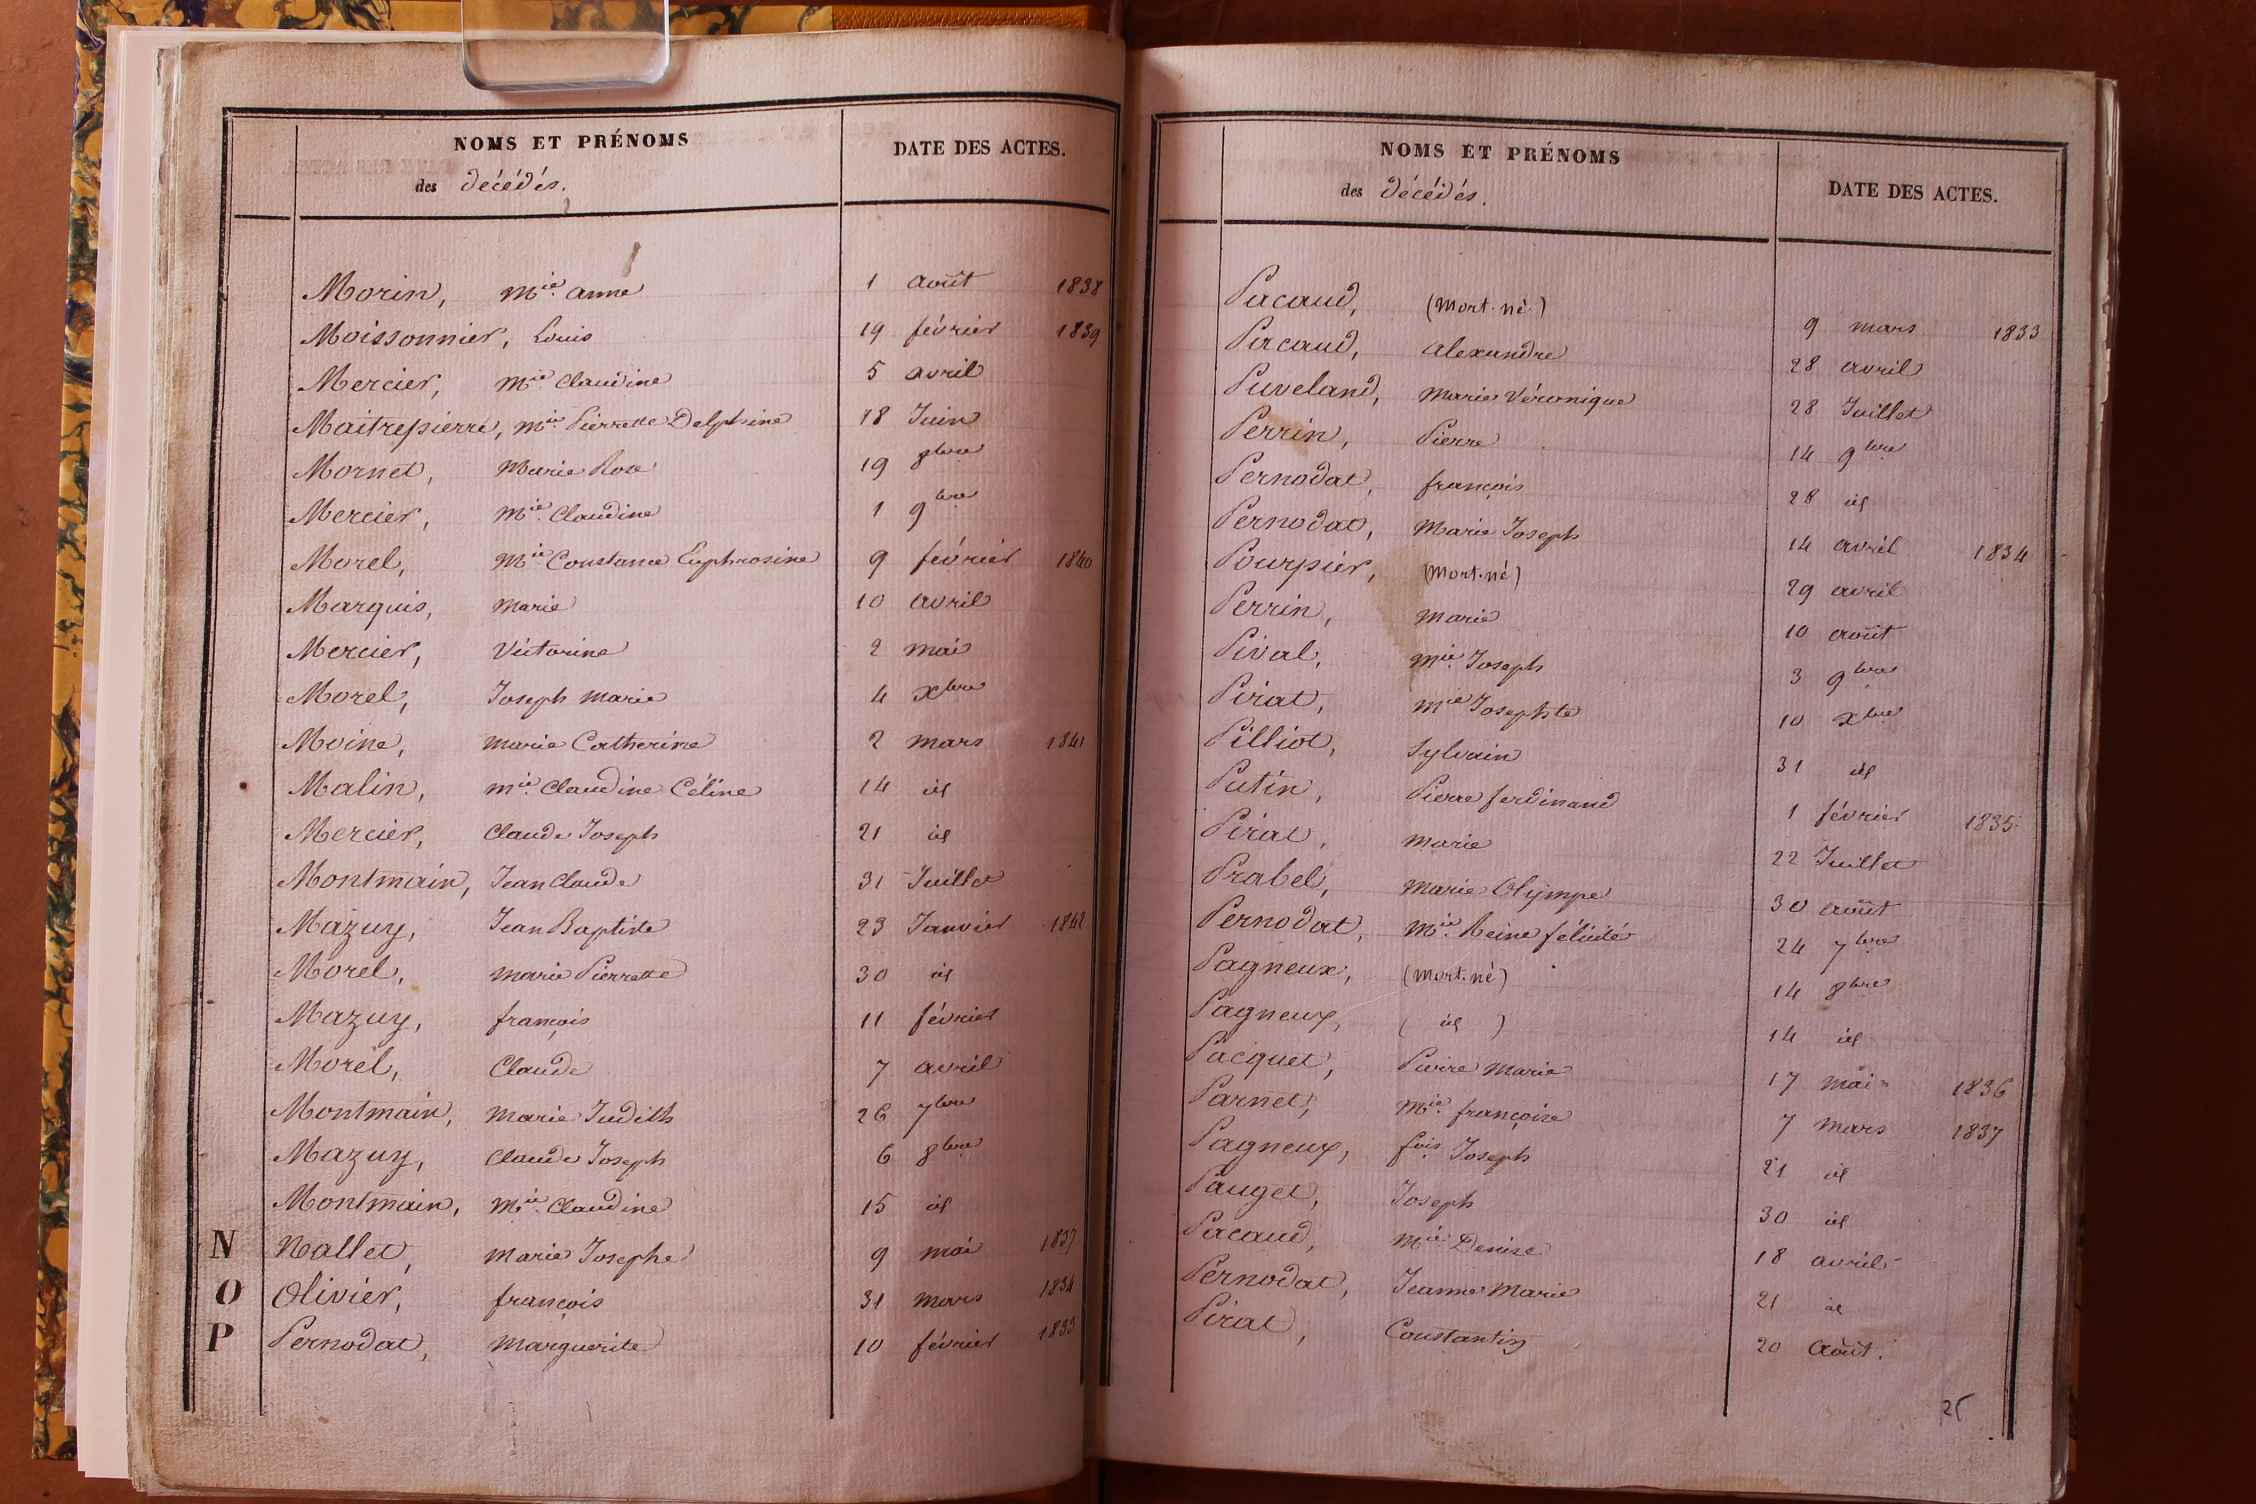 NOMS ET PRÉNOMS DATE DES ACTES.
des décédés.
Morin, Mie. anne 1 août 1838
Moissonnier, Louis 19 février 1839
Mercier, Mie Claudine 5 avril
Maitrepierre, Mie. Pierrette Delphine 18 Juin
Mornet, Marie Rose 19 8bre
Mercier, Mie. Claudine 1 9bre
Morel, Mie Constance Euphrosine 9 février 1840
Marquis, Marie 10 avril
Mercier, Victorine 2 mai
Morel, Joseph Marie 4 xbre
Moine, Marie Catherine 2 mars 1841
Malin, Mie. Claudine Céline 14 id
Mercier, Claude Joseph 21 id
Montmain, Jean Claude 31 Juillet
Mazuy, Jean Baptiste 23 Janvier 1842
Morel, Marie Pierrette 30 id
Mazuy, françois 11 février
Morel, Claude 7 avril
Montmain, Marie Judith 26 7bre
Mazuy, Claude Joseph 6 8bre
Montmain, Mie. Claudine 15 id
N Nallet, Marie Josephe 9 mai 1837
O Olivier, françois 31 mars 1834
P Pernodat, Marguerite 10 février 1833
NOMS ET PRÉNOMS DATE DES ACTES.
des décédés.
Pacaud, (Mort-né) 9 mars 1833
Pacaud, alexandre 28 avril
Puveland, Marie Véronique 28 Juillet
Perrin, Pierre 14 9bre
Pernodat, françois 28 id
Pernodat, Marie Joseph 14 avril 1834
Pourpier, (Mort-né) 29 avril
Perrin, Marie 10 août
Pival, Mie. Joseph 3 9bre
Pirat, Mie Josephte 10 xbre
Pilliot, Sylvain 31 id
Putin, Pierre ferdinand 1 février 1835
Pirat, Marie 22 Juillet
Prabel, Marie Olympe 30 août
Pernodat, Mie. Reine félicité 24 7bre
Pagneux, (Mort-né) 14 8bre
Pagneux, ( id ) 14 id
Pacquet, Pierre Marie 17 mai 1836
Parnet, Mie. françoise 7 mars 1837
Pagneux, fois Joseph 21 id
Pauget, Joseph 30 id
Pacaud, Mie Denise 18 avril
Pernodat, Jeanne Marie 21 id
Pirat, Constantin 20 Août.
25